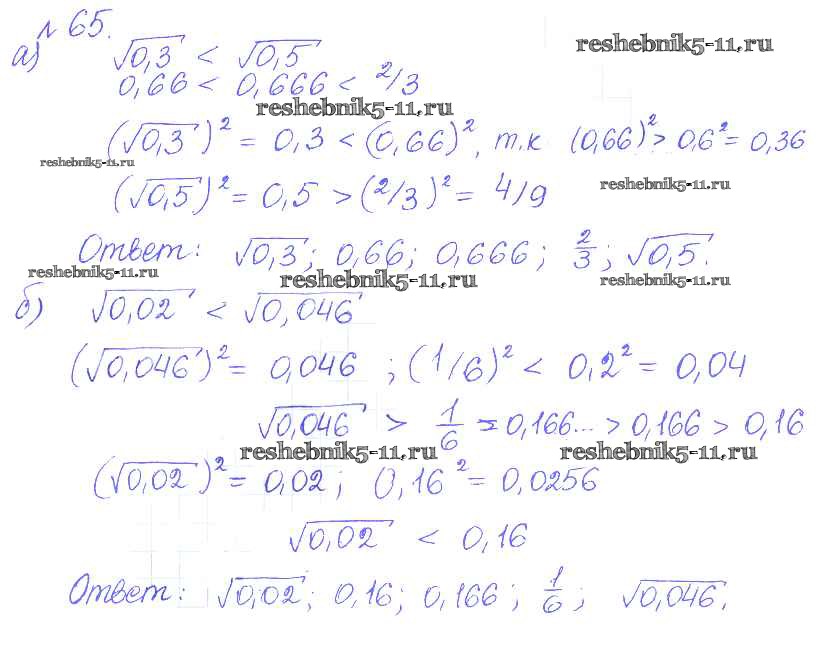 № 65.
reshebnik5-11.ru
а) √0,3 < √0,5
0,66 < 0,666 < 2/3
reshebnik5-11.ru
(√0,3)² = 0,3 < (0,66)², т.к (0,66)² > 0,6² = 0,36
reshebnik5-11.ru
(√0,5)² = 0,5 > (2/3)² = 4/9
reshebnik5-11.ru
Ответ: √0,3; 0,66; 0,666; 2/3; √0,5.
reshebnik5-11.ru reshebnik5-11.ru reshebnik5-11.ru
б) √0,02 < √0,046
(√0,046)² = 0,046 ; (1/6)² < 0,2² = 0,04
√0,046 > 1/6 = 0,166... > 0,166 > 0,16
reshebnik5-11.ru reshebnik5-11.ru
(√0,02)² = 0,02; 0,16² = 0,0256
√0,02 < 0,16
Ответ: √0,02; 0,16; 0,166; 1/6; √0,046.